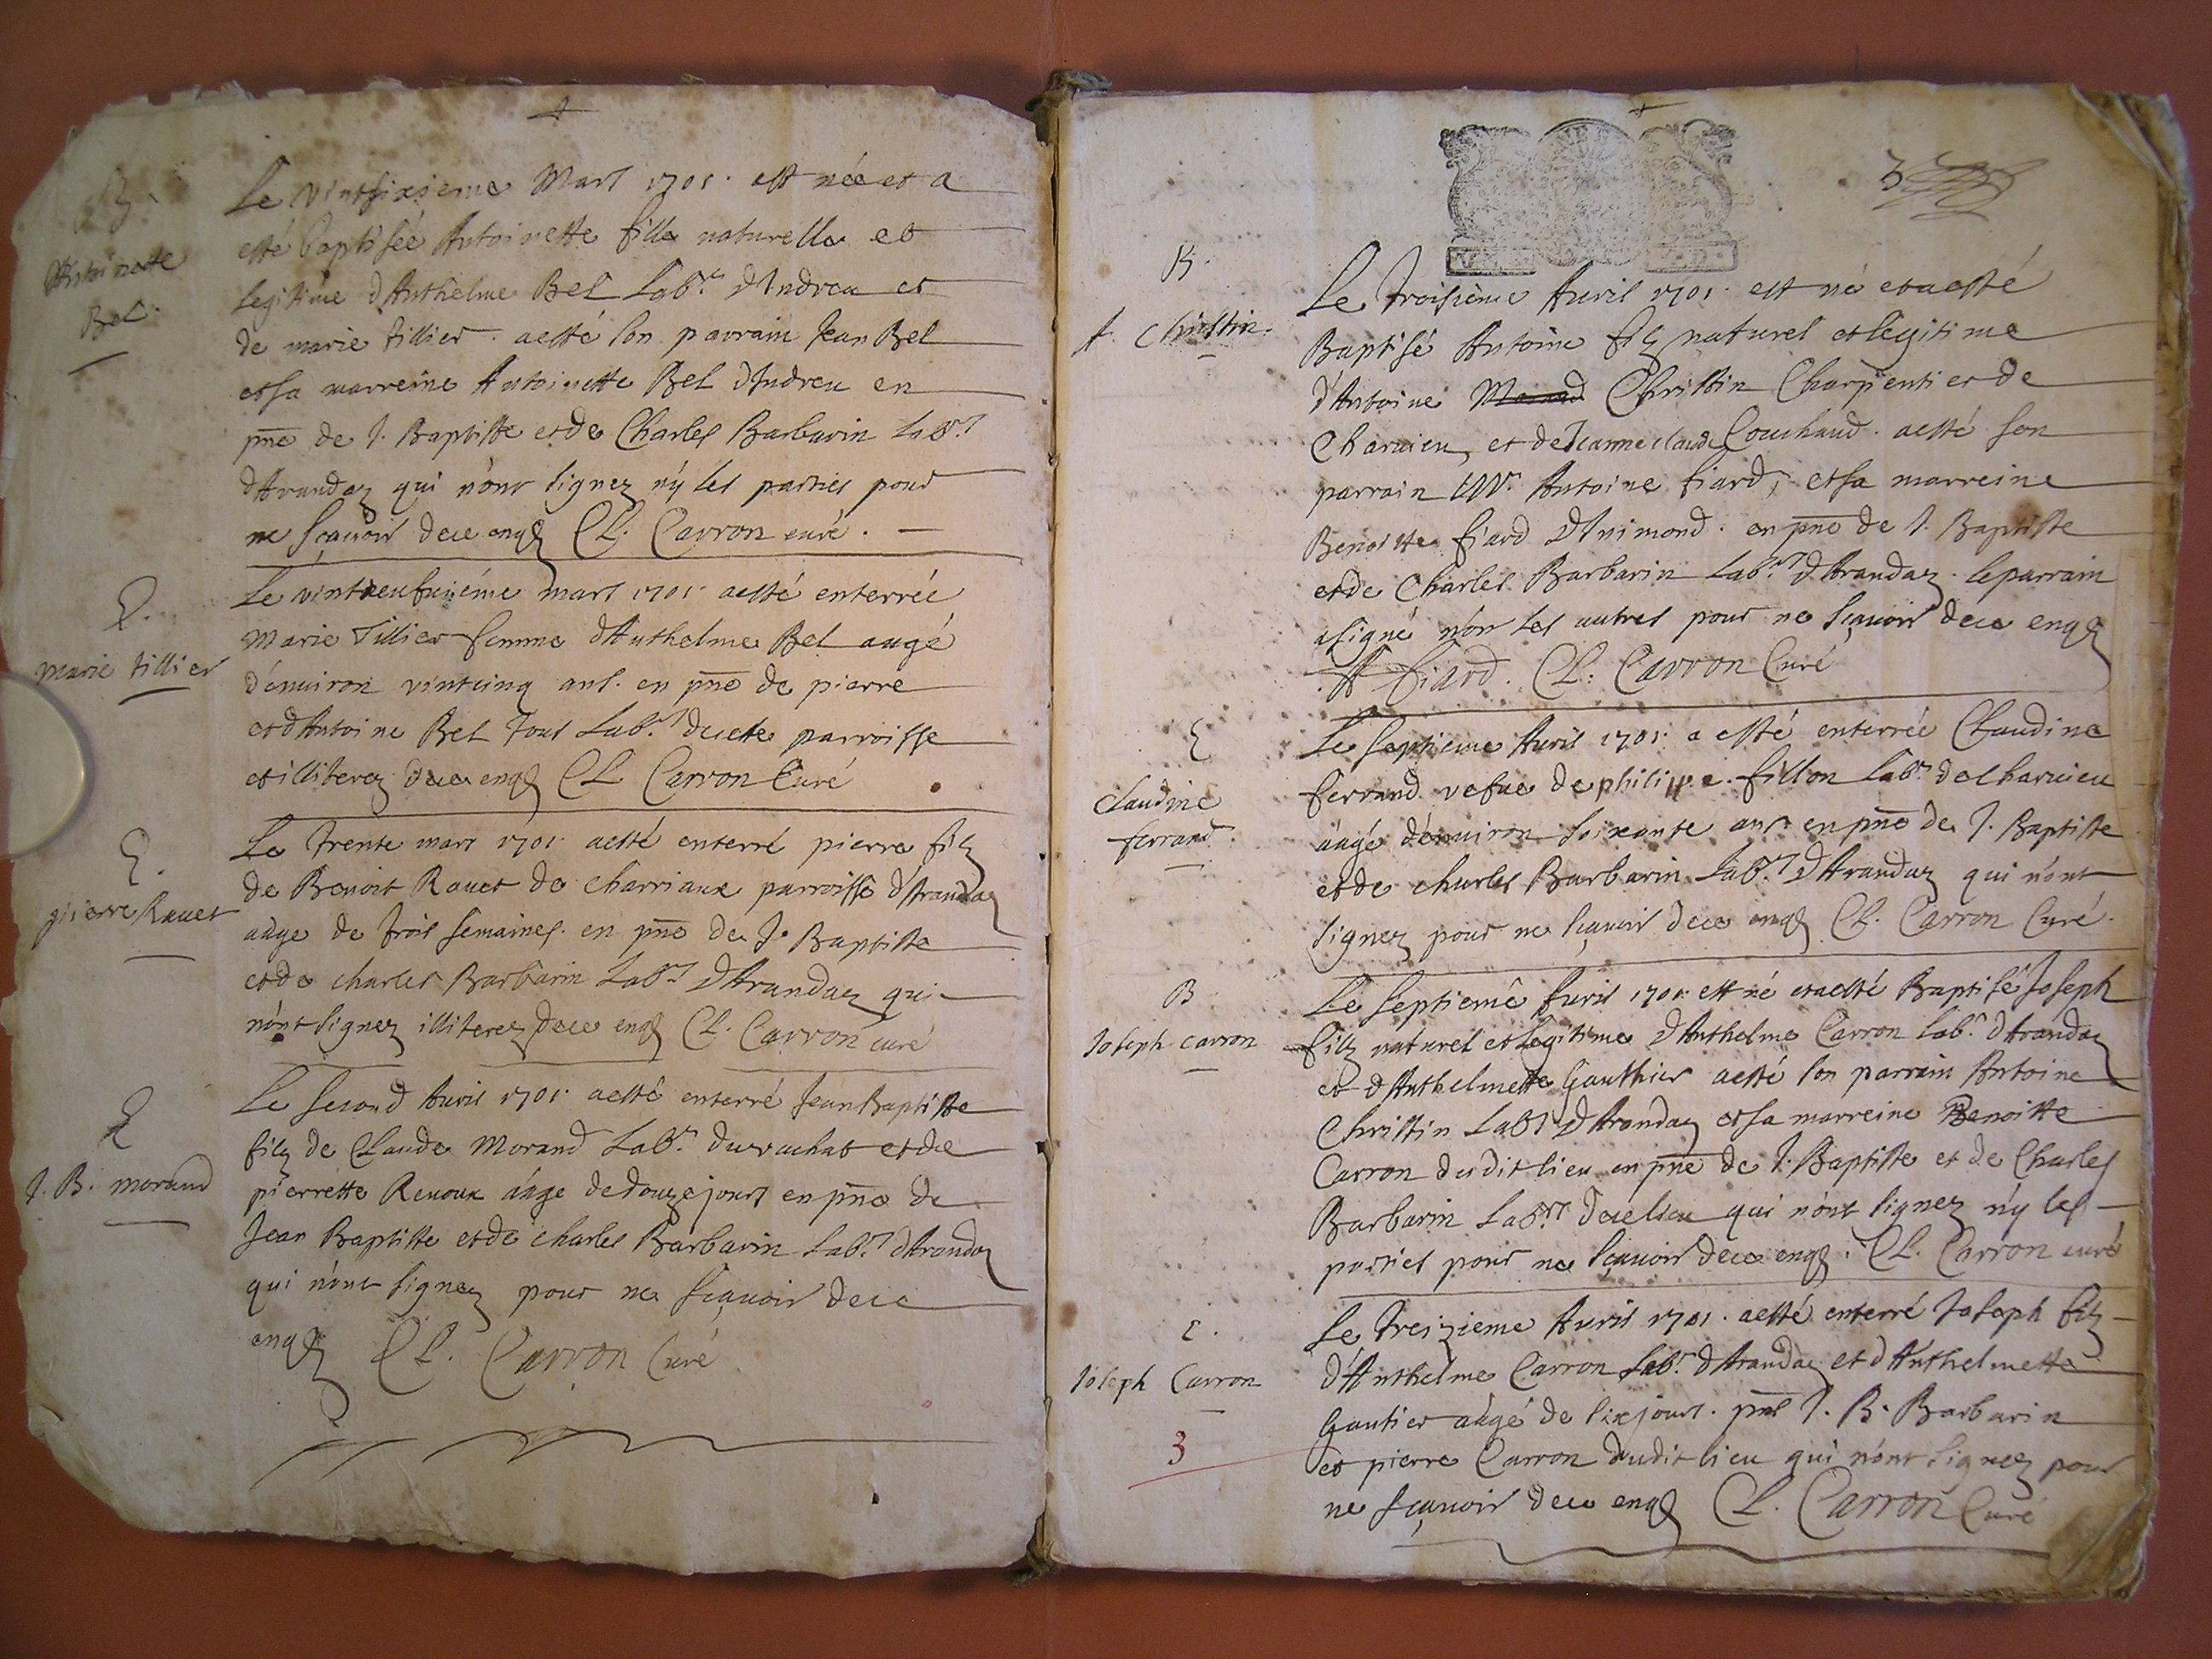 B.
Antoinette
Bel.
Le vintsixieme Mars 1701. est née et a
esté baptisée Antoinette fille naturelle et
legitime d'Anthelme Bel Labr. d'Indreu et
de marie tillier. aesté son parrain Jean Bel
et sa marreine Antoinette Bel d'Indreu en
pñce de J. Baptiste et de Charles Barbarin Labrs
d'Arandaz qui n'ont signez n'y les parties pour
ne sçavoir de ce enqs CL. Carron curé.
E.
marie tillier
Le vintneufuiéme mars 1701. aesté enterrée
Marie Tillier femme d'Anthelme Bel aagé
d'enuiron vintcinq ans. en pñce de pierre
et d'Antoine Bel Tous Labrs de cete parroisse
et illiterez de ce enqs CL Carron Curé
E.
pierre Rauet
Le trente mars 1701. aesté enterré pierre filz
de Benoit Rauet de charriaux parroisse d'Arandaz
aage de trois semaines. en pñce de J. Baptiste
et de charles Barbarin Labrs d'Arandaz qui
n'ont signez illiterez de ce enqs CL. Carron curé
E
J. B. morand
Le second Auril 1701. aesté enterré Jean Baptiste
filz de Claude Morand Labr. du rachat et de
pierrette Renoux aage de douze jours en pñce de
Jean Baptiste et de charles Barbarin Labrs d'Arandaz
qui n'ont signez pour ne sçavoir de ce
enqs CL. Carron Curé
3
B.
A. Christin.
Le troisieme Auril 1701. est né et aesté
Baptisé Antoine filz naturel et legitime
d'Antoine Christin Charpentier de
Charuieu, et de Jeanne claude Couchaud. aesté son
parrain Mr. Antoine fiard, et sa marreine
Benoitte fiard d'Inimond. en pñce de J. Baptiste
et de Charles Barbarin Labrs d'Arandaz. le parrain
a signé n'on les autres pour ne sçavoir de ce enqs
A fiard. CL. Carron Curé
E
claudine
ferrand
Le septieme Auril 1701. a esté enterrée Claudine
ferrand vefue de philippe. fillon Labr. de Charuieu
aagé d'enuiron soixante ans en pñce de J. Baptiste
et de charles Barbarin Labrs d'Arandaz qui n'ont
signez pour ne sçavoir de ce enqs CL. Carron Curé.
B
Joseph carron
Le septieme Auril 1701. est né et aesté Baptisé Joseph
filz naturel et legitime d'Anthelme Carron Labr. d'Arandaz
et d'Anthelmette Gauthier aesté son parrain Antoine
Christin Labr d'Arandaz et sa marreine Benoitte
Carron dudit lieu en pñce de J. Baptiste et de Charles
Barbarin Labrs de ce lieu qui n'ont signez n'y les
parties pour ne sçavoir de ce enqs. CL. Carron curé
E.
Joseph Carron
3
Le treizieme Auril 1701. aesté enterré Joseph filz
d'Anthelme Carron Labr. d'Arandaz et d'Anthelmette
Gautier aagé de six jours. pñs J. B. Barbarin
et pierre Carron dudit lieu qui n'ont signez pour
ne sçavoir de ce enqs CL. Carron Curé